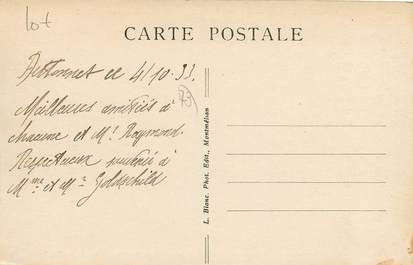 lot
CARTE POSTALE
le 4/10.33.
73
Meilleures amitiés à
chacune et Mr Raymond.
Respectueux à
Mme et Mr Goldschild
L. Blanc, Phot. Edit., Montmélian